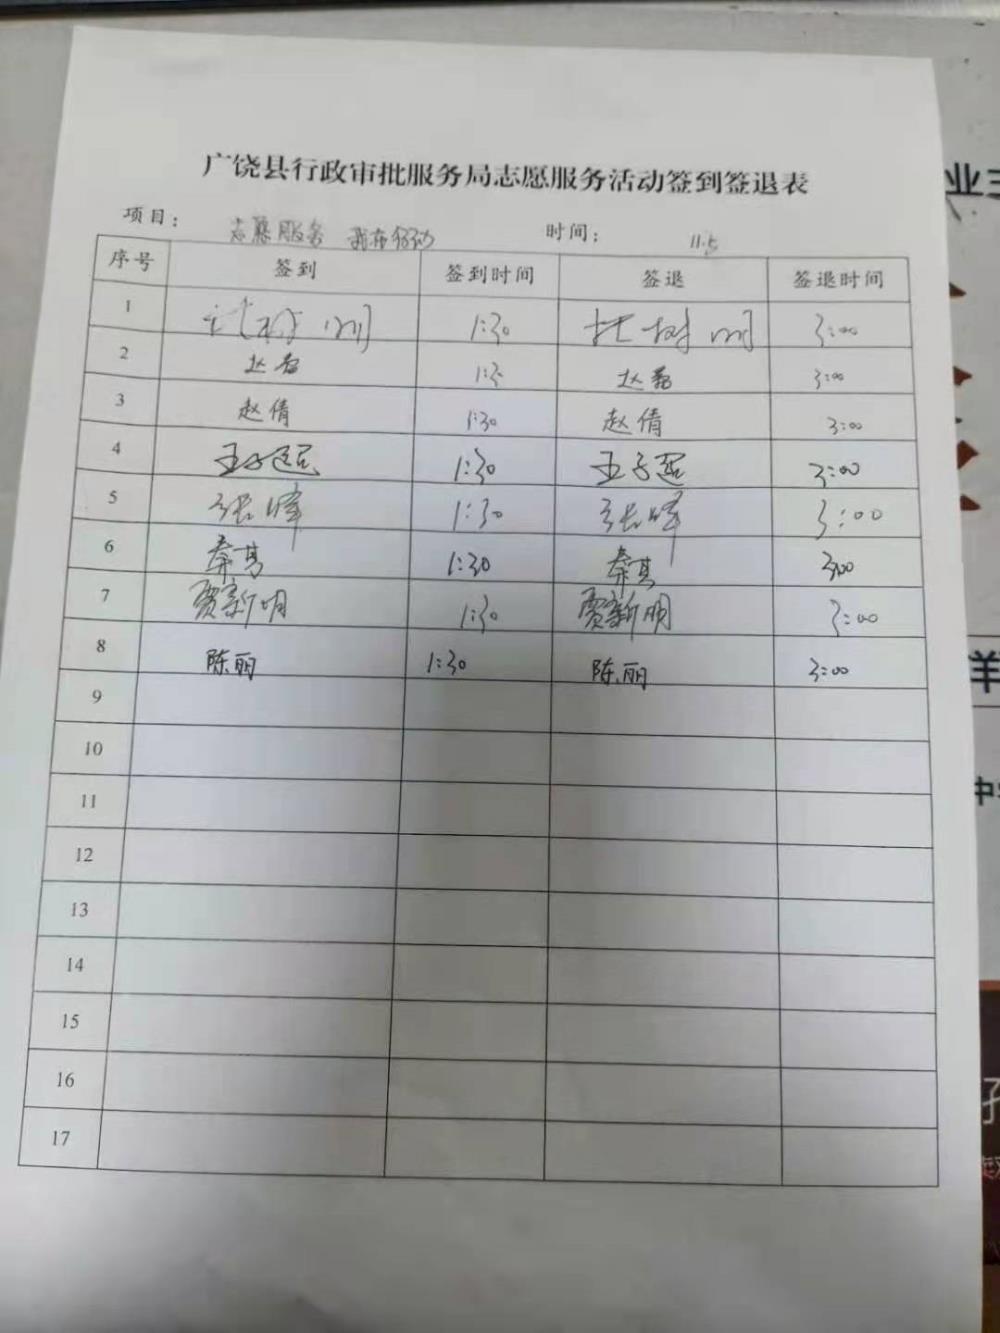 广饶县行政审批服务局志愿服务活动签到签退表
项目： 志愿服务 我在行动 时间： 11.5
序号 签到 签到时间 签退 签退时间
1 1:30 树 3:00
2 赵 1:3 赵 3:00
3 赵倩 1:30 赵倩 3:00
4 王子超 1:30 王子超 3:00
5 张峰 1:30 张峰 3:00
6 秦其 1:30 秦其 3:00
7 贾新明 1:30 贾新明 3:00
8 陈丽 1:30 陈丽 3:00
9
10
11
12
13
14
15
16
17
业
洋
中